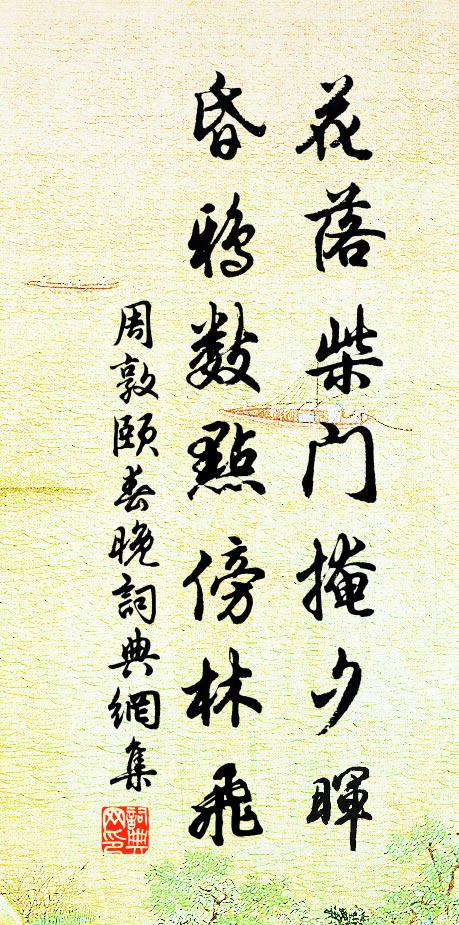 花落柴門掩夕暉
昏鴉數點傍林飛
周敦頤春晚詞典網集
詞典網印